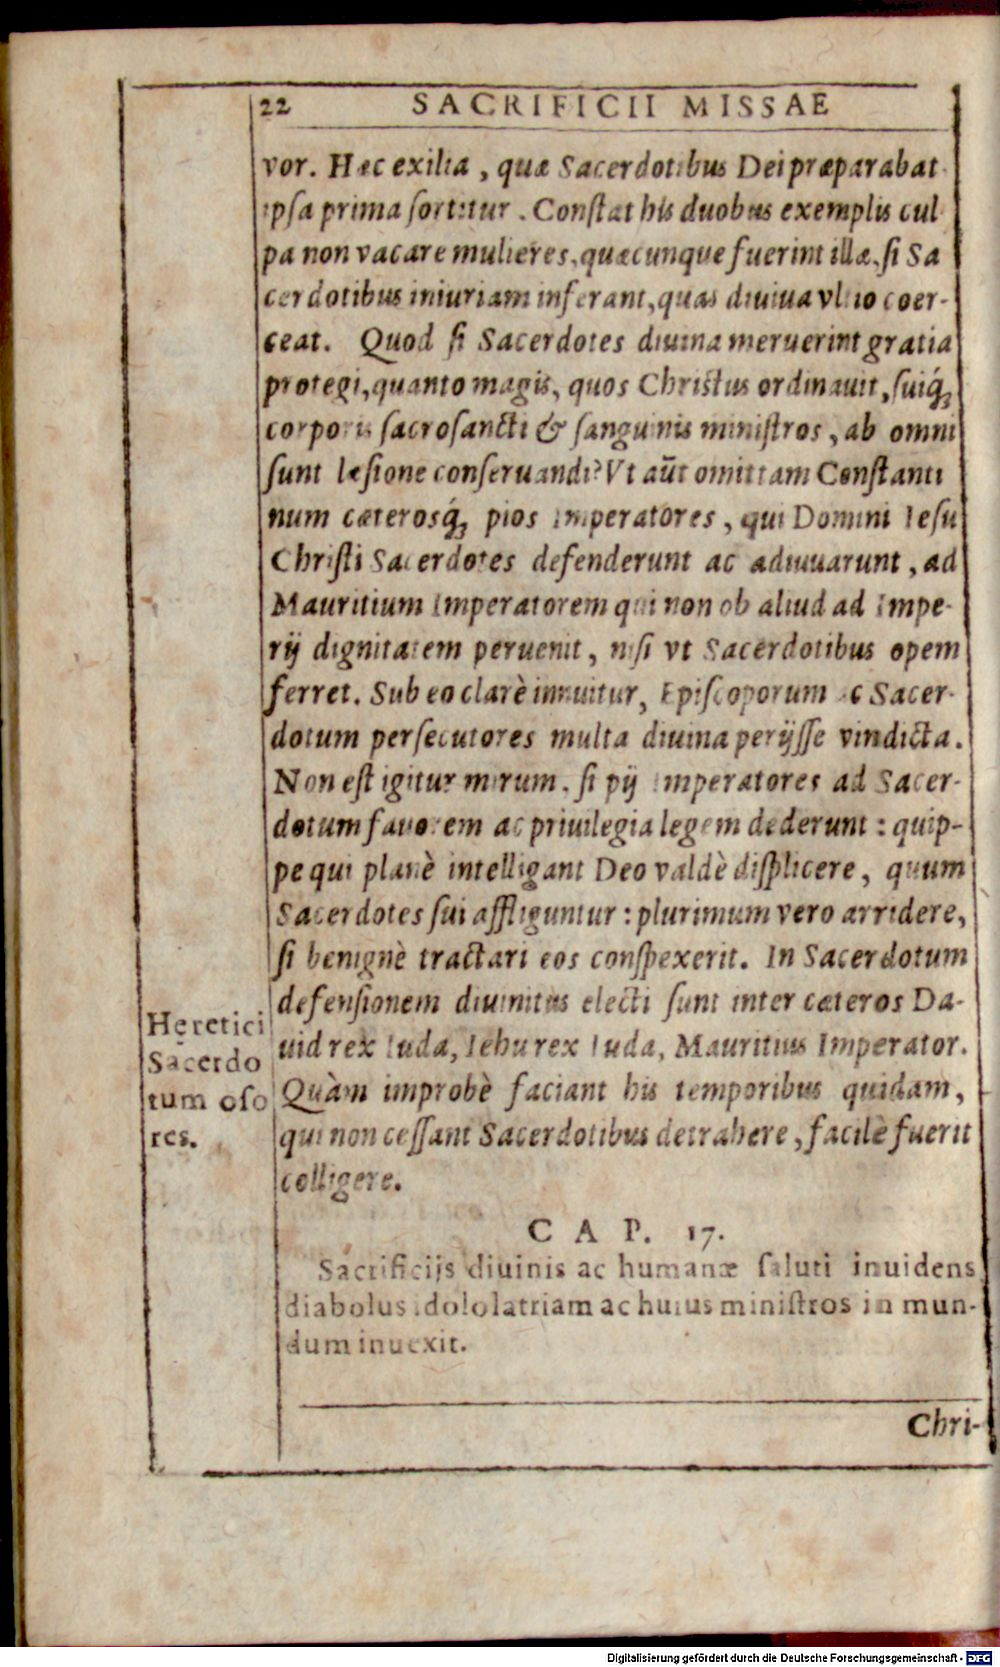 22 SACRIFICII MISSAE
vor. Hæc exilia, quæ Sacerdotibus Dei præparabat
ipsa prima sortitur. Constat his duobus exemplis cul
pa non vacare mulieres, quæcunque fuerint illæ, si Sa
cerdotibus iniuriam inferant, quas diuiua vltio coer-
ceat. Quod si Sacerdotes diuina meruerint gratia
protegi, quanto magis, quos Christus ordinauit, suiq́₃
corporis sacrosancti & sanguinis ministros, ab omni
sunt læsione conseruandi? Vt aũt omittam Constanti
num cæterosq́₃ pios Imperatores, qui Domini Iesu
Christi Sacerdotes defenderunt ac adiuuarunt, ad
Mauritium Imperatorem qui non ob aliud ad Impe-
rij dignitatem peruenit, nisi vt Sacerdotibus opem
ferret. Sub eo clarè innuitur, Episcoporum ac Sacer-
dotum persecutores multa diuina perijsse vindicta.
Non est igitur mirum, si pij Imperatores ad Sacer-
dotum fauorem ac priuilegia legem dederunt: quip-
pe qui planè intelligant Deo valdè displicere, quum
Sacerdotes sui affliguntur: plurimum vero arridere,
si benignè tractari eos conspexerit. In Sacerdotum
defensionem diuinitus electi sunt inter cæteros Da-
uid rex Iuda, Iehu rex Iuda, Mauritius Imperator.
Quàm improbè faciant his temporibus quidam,
qui non cessant Sacerdotibus detrahere, facilè fuerit
colligere.
Hęretici
Sacerdo
tum oso
res.
CAP. 17.
Sacrificijs diuinis ac humanæ saluti inuidens
diabolus idololatriam ac huius ministros in mun-
dum inuexit.
Chri-
Digitalisierung gefördert durch die Deutsche Forschungsgemeinschaft - DFG